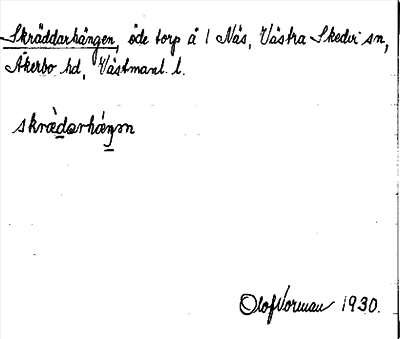 Skräddarhängen, öde torp å 1 Näs, Västra Skedvi sn,
Åkerbo hd, Västmanl. l.
skrädarháŋən
Olof Vorman 1930.